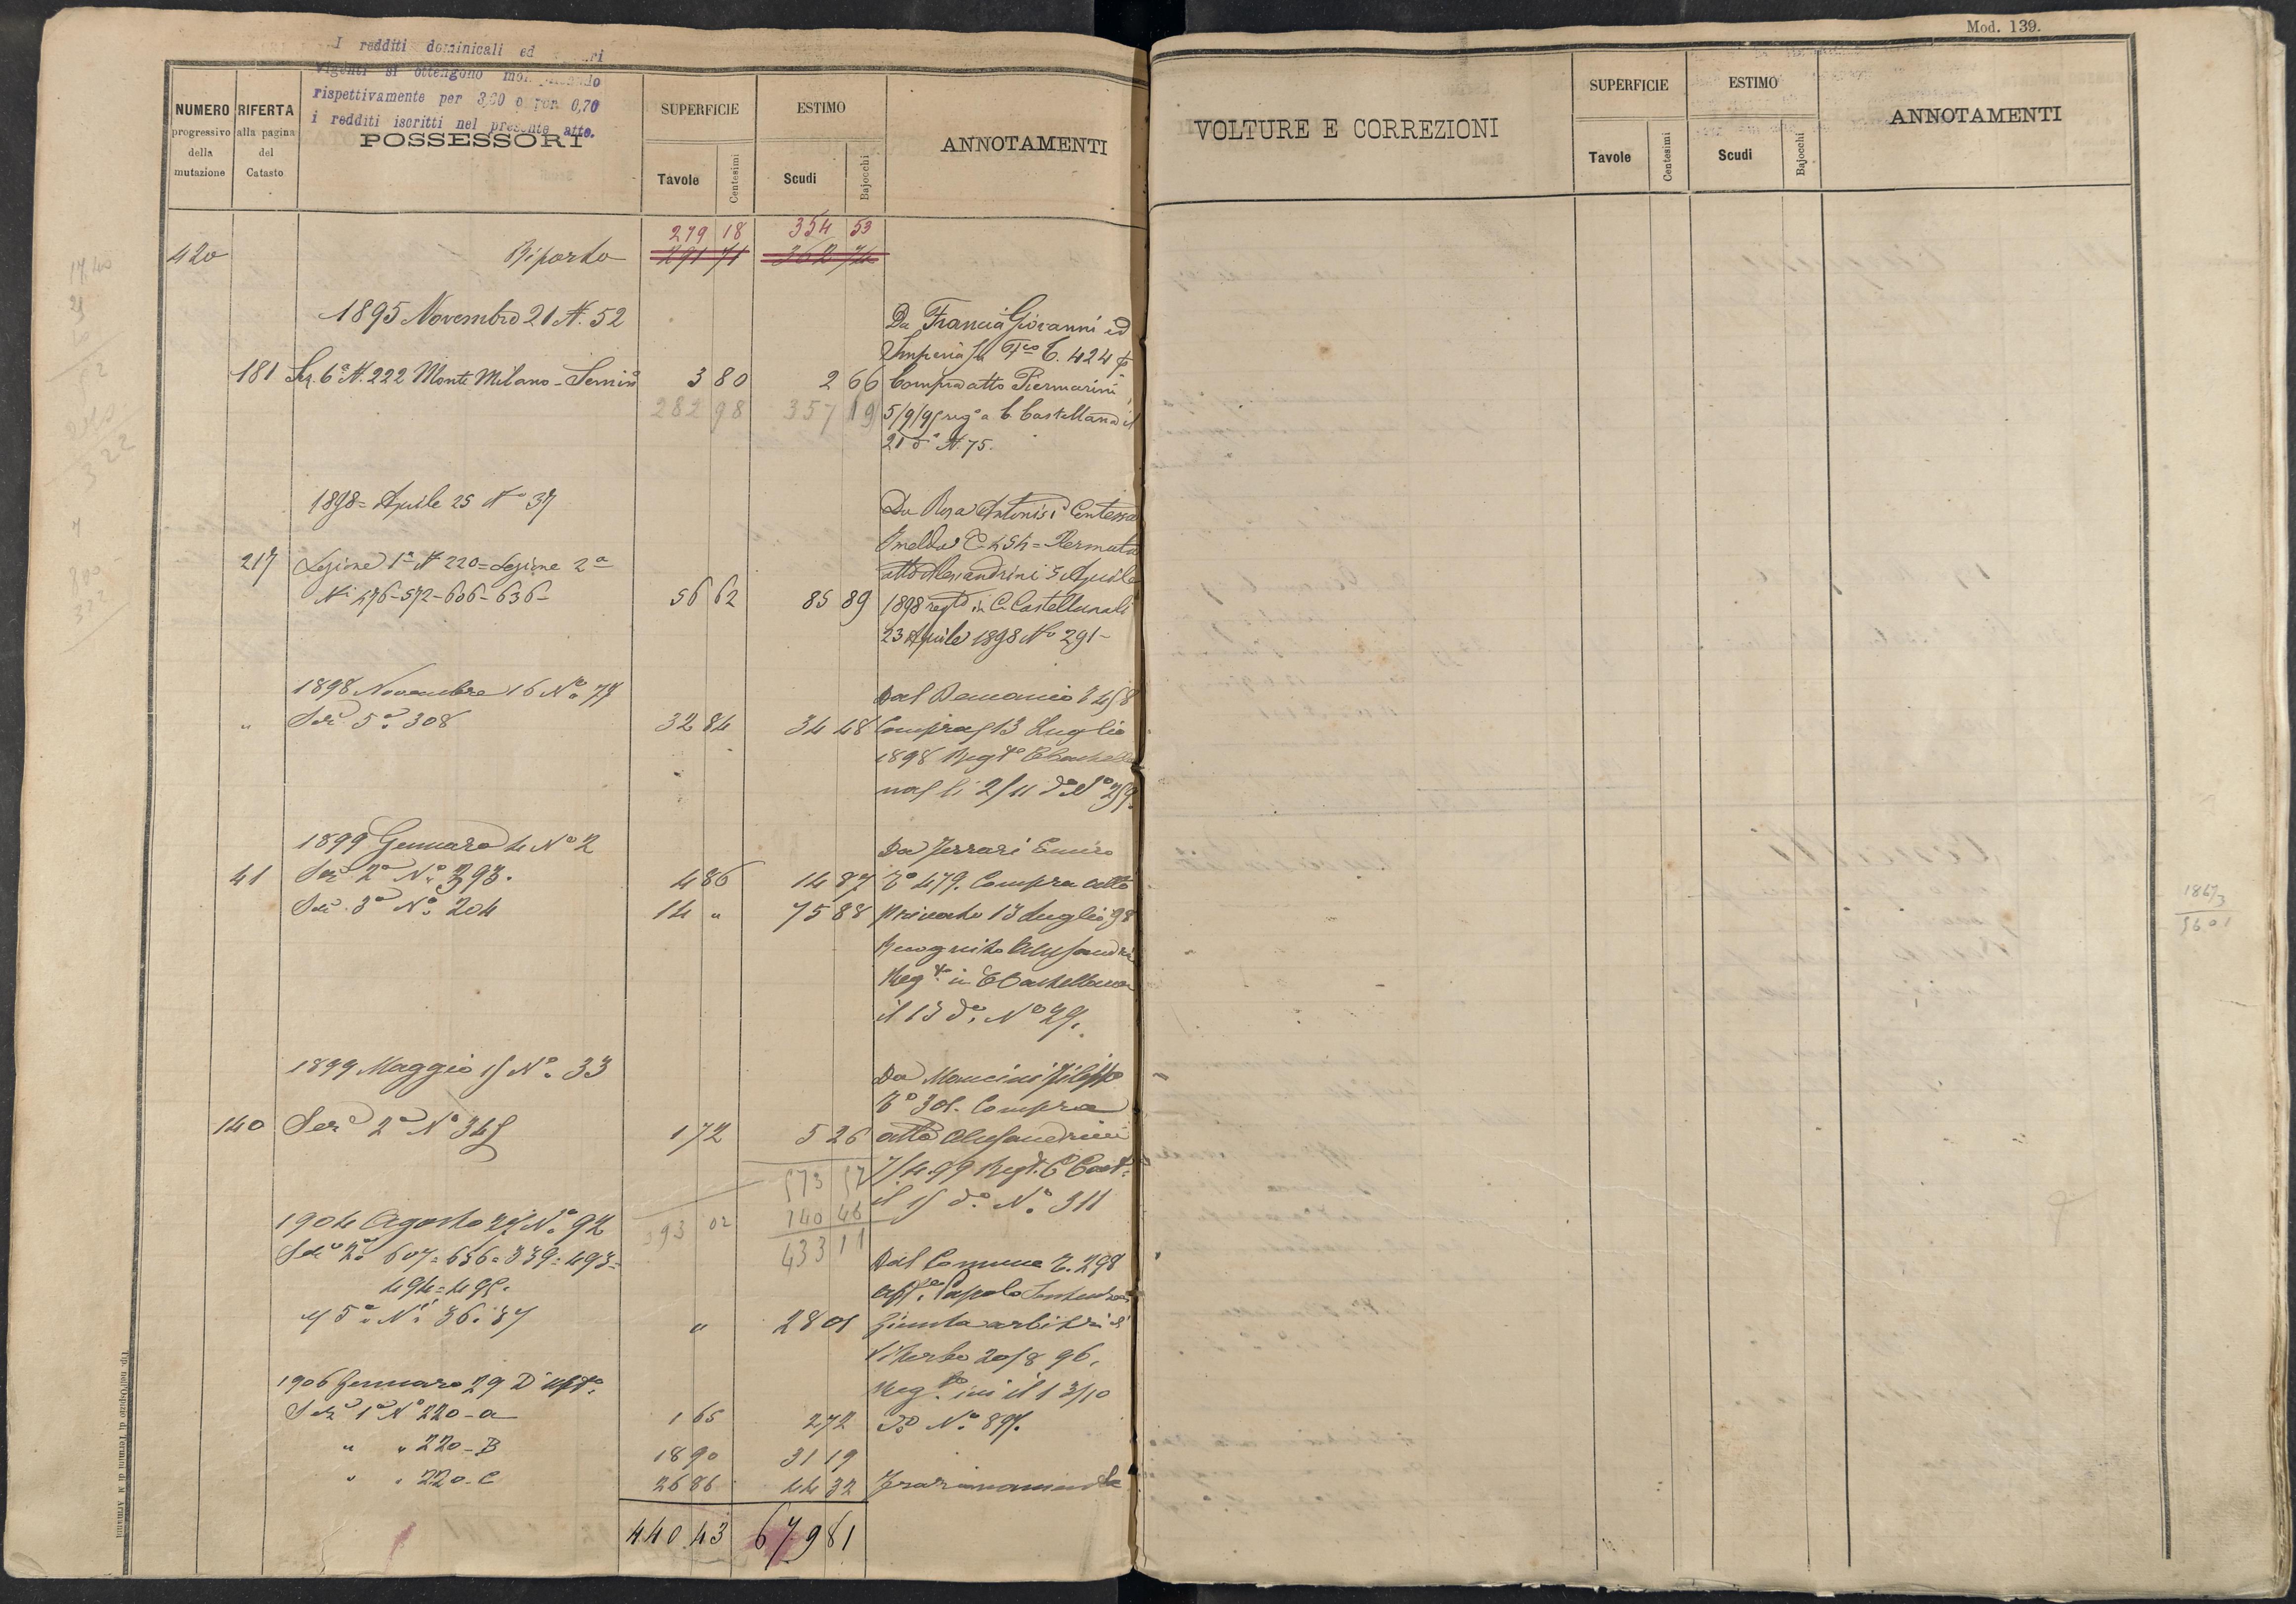 Mod. 139.
I redditi dominicali ed
vigenti si ottengono
rispettivamente per 3,60 e per 0,70
i redditi iscritti nel presente atto.
NUMERO progressivo della mutazione
RIFERTA alla pagina del Catasto
POSSESSORI
SUPERFICIE
Tavole
Centesimi
ESTIMO
Scudi
Bajocchi
ANNOTAMENTI
VOLTURE E CORREZIONI
SUPERFICIE
Tavole
Centesimi
ESTIMO
Scudi
Bajocchi
ANNOTAMENTI
279 18 354 53
420 Riporto 291 71 362 74
1895 Novembre 21 N. 52 Da Francia Giovanni ed
Imperia fu Fco C. 424
181 Sez. 6a N. 222 Monte Milano - Semin 3 80 2 66 Compra atto Piermarini
282 98 357 19 5/9/95 reg° a C. Castellana il
21 d° N. 75.
1898 = Aprile 25 N° 37 Da Rosa Antonisi Contessa
Imelda C. 454 = Permuta
217 Sezione 1a N 220 = Sezione 2a atto Alessandrini 5 Aprile
Ni 476-572-606-636- 56 62 85 89 1898 regto in C. Castellana li
23 Aprile 1898 N° 291-
1898 Novembre 16 N° 77 Dal Demanio C 458
" Sez 5a 308 32 84 34 48 Compra 13 Luglio
1898 Regto
li 2/11 d° N° 259.
1899 Gennaro 4 N° 2 Da Ferrari Emiro
41 Sez 2a N° 393. 4 86 14 87 C° 479. Compra atto
Sez. 3a N° 204 14 " 75 88 privato 13 Luglio 98
Recognito Alessandrini
Regto in C Castellana
il 13 d°. N° 29.
1899 Maggio 15 N° 33 Da Mancini Filippo
C° 301. Compra
140 Sez 2a N° 345 1 72 5 26 atto Alessandrini
573 57 7/4 99 Regt. C Cast.
140 46 il 15 d° N° 311
393 02 433 11
1904 Agosto 27 N° 92
Sez 2a 607 = 656 = 339 = 493 = Dal Comune C. 298
494 = 495.
" 5a Ni 36. 37 " 28 01 Giunta arbitri di
Viterbo 20/8 96.
1906 Gennaro 29 D' Uffto. Regto ivi il 13/10
Sez 1a N° 220-a 1 65 2 72 d° N° 897.
" " 220-B 18 90 31 19
" " 220-C 26 86 44 32 Frazionamento
440 43 679 81
1867/3
5601